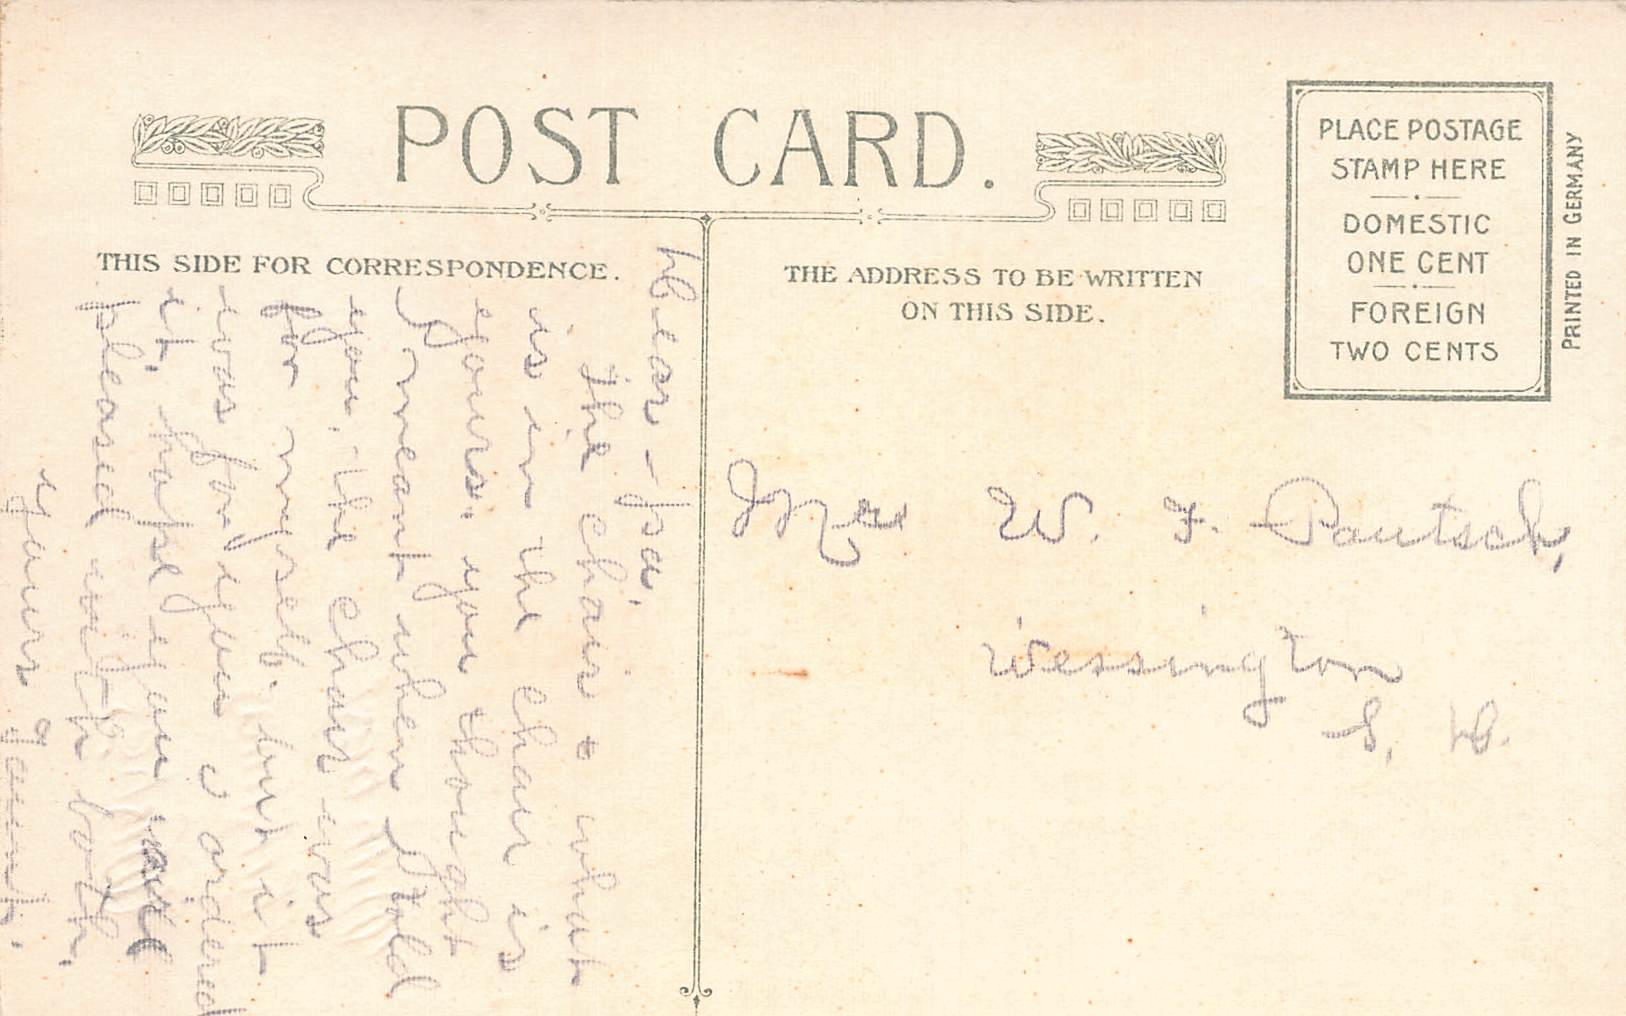 POST CARD.
THIS SIDE FOR CORRESPONDENCE.
THE ADDRESS TO BE WRITTEN
ON THIS SIDE.
PLACE POSTAGE
STAMP HERE
DOMESTIC
ONE CENT
FOREIGN
TWO CENTS
PRINTED IN GERMANY
Dear
The chair & what
is in the chair is
yours. you thought
I meant when I told
you, the chair was
for myself. but it
was for you i ordered
it, hope you will
pleased with both.
yours
W. F. Pautsch,
Wessington
S. D.